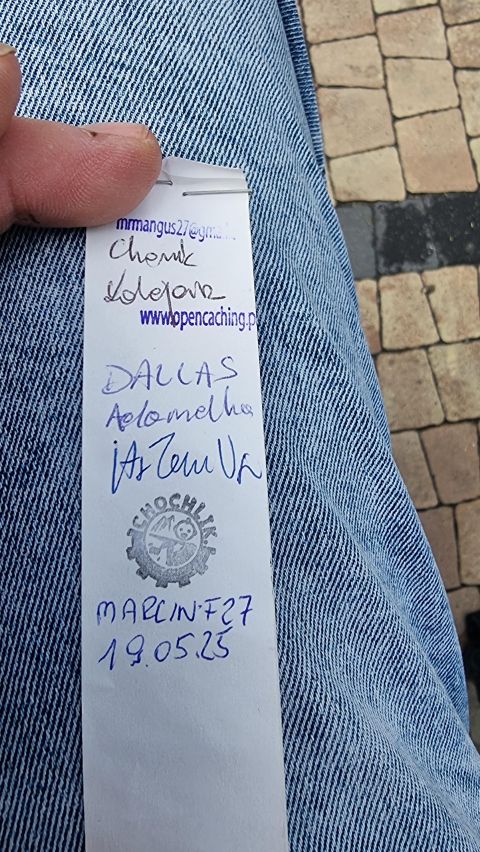 mrmangus27@gma
Chomik
Kolejarz
www.opencaching.p
DALLAS
Adamelka
CHOCHLIKI
MARCIN-F27
19.05.25